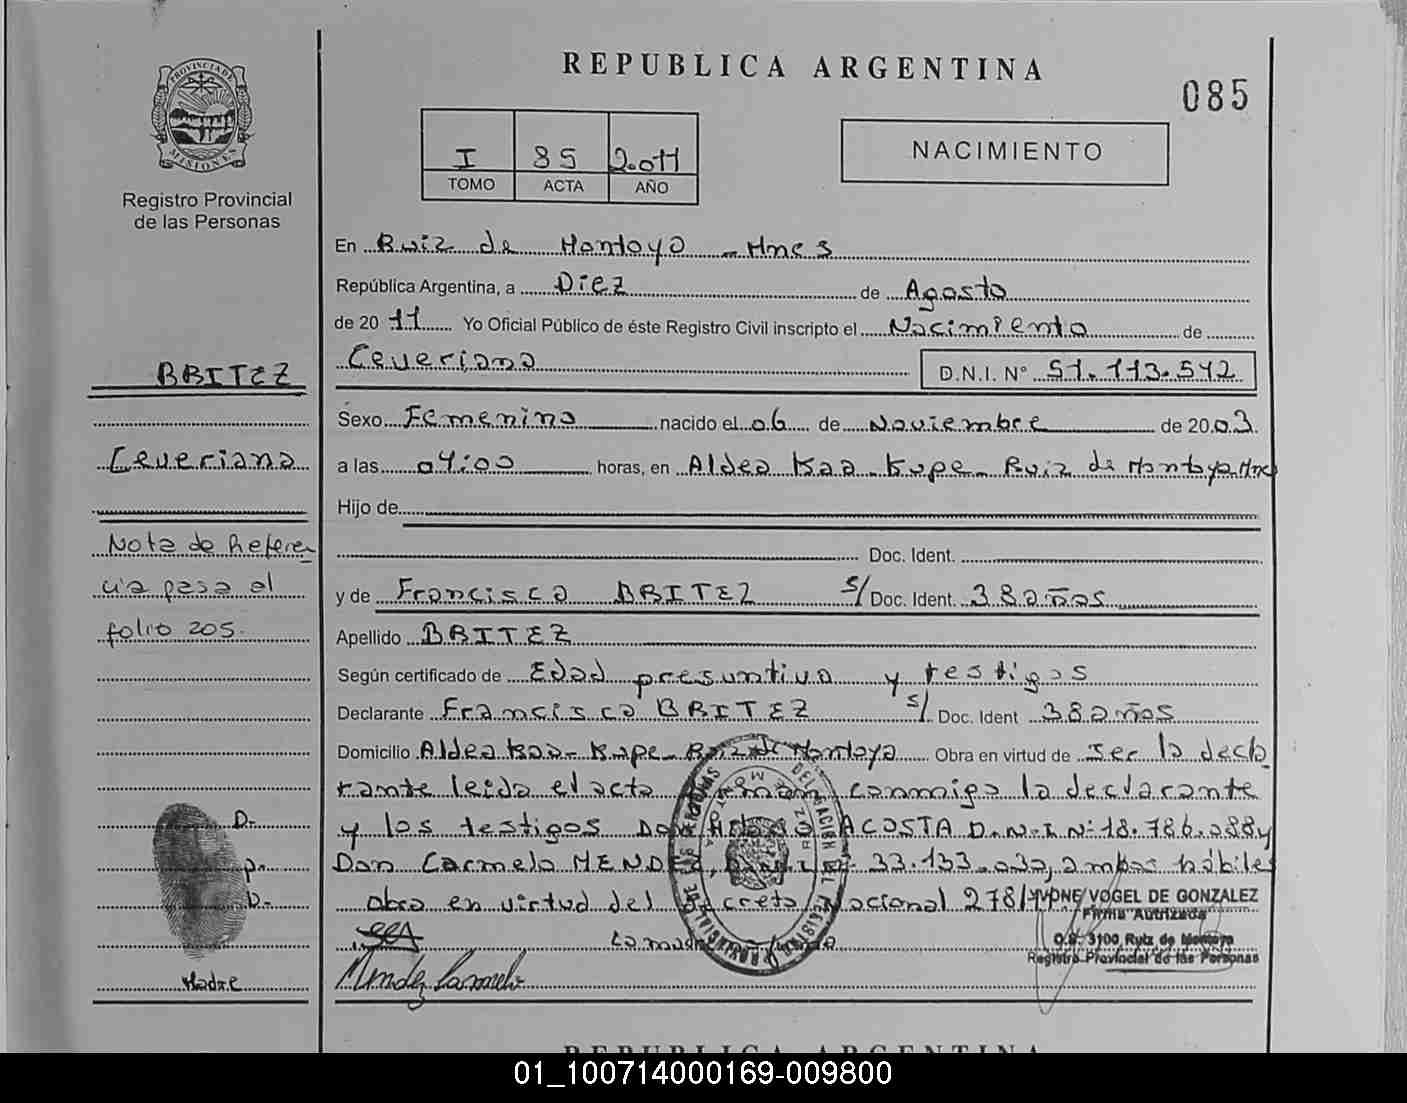 REPUBLICA ARGENTINA
085
PROVINCIA DE
MISIONES
Registro Provincial
de las Personas
I 85 2.011
TOMO ACTA AÑO
NACIMIENTO
En Ruiz de Montoya - Mnes
República Argentina, a Diez de Agosto
de 20 11 Yo Oficial Público de éste Registro Civil inscripto el Nacimiento de
Ceveriana D.N.I. N° 51.113.542
BRITEZ
Ceveriana
Nota de Referen
cia pasa al
folio 205.
Sexo Femenino nacido el 06 de Noviembre de 20 03
a las 04:00 horas, en Aldea Kaa-Kupe- Ruiz de Montoya Mnes
Hijo de
Doc. Ident.
y de Francisca BRITEZ s/ Doc. Ident. 38 años
Apellido BRITEZ
Según certificado de Edad presuntiva y testigos
Declarante Francisca BRITEZ s/ Doc. Ident 38 años
Domicilio Aldea Kaa-Kupe- Ruiz de Montoya Obra en virtud de ser la decla
rante leida el acta conmigo la declarante
y los testigos Don ACOSTA D.N.I Nº 18.786.088 y
Don Carmelo 33.133.030, ambos hábiles
obra en virtud del Nacional 278/
YVONE VOGEL DE GONZALEZ
Firma Autrizada
O.S. 3100 Ruiz de Montoya
Registro Provincial de las Personas
Mendez Carmelo
D-
P-
D-
Madre
REPUBLICA ARGENTINA
01_100714000169-009800